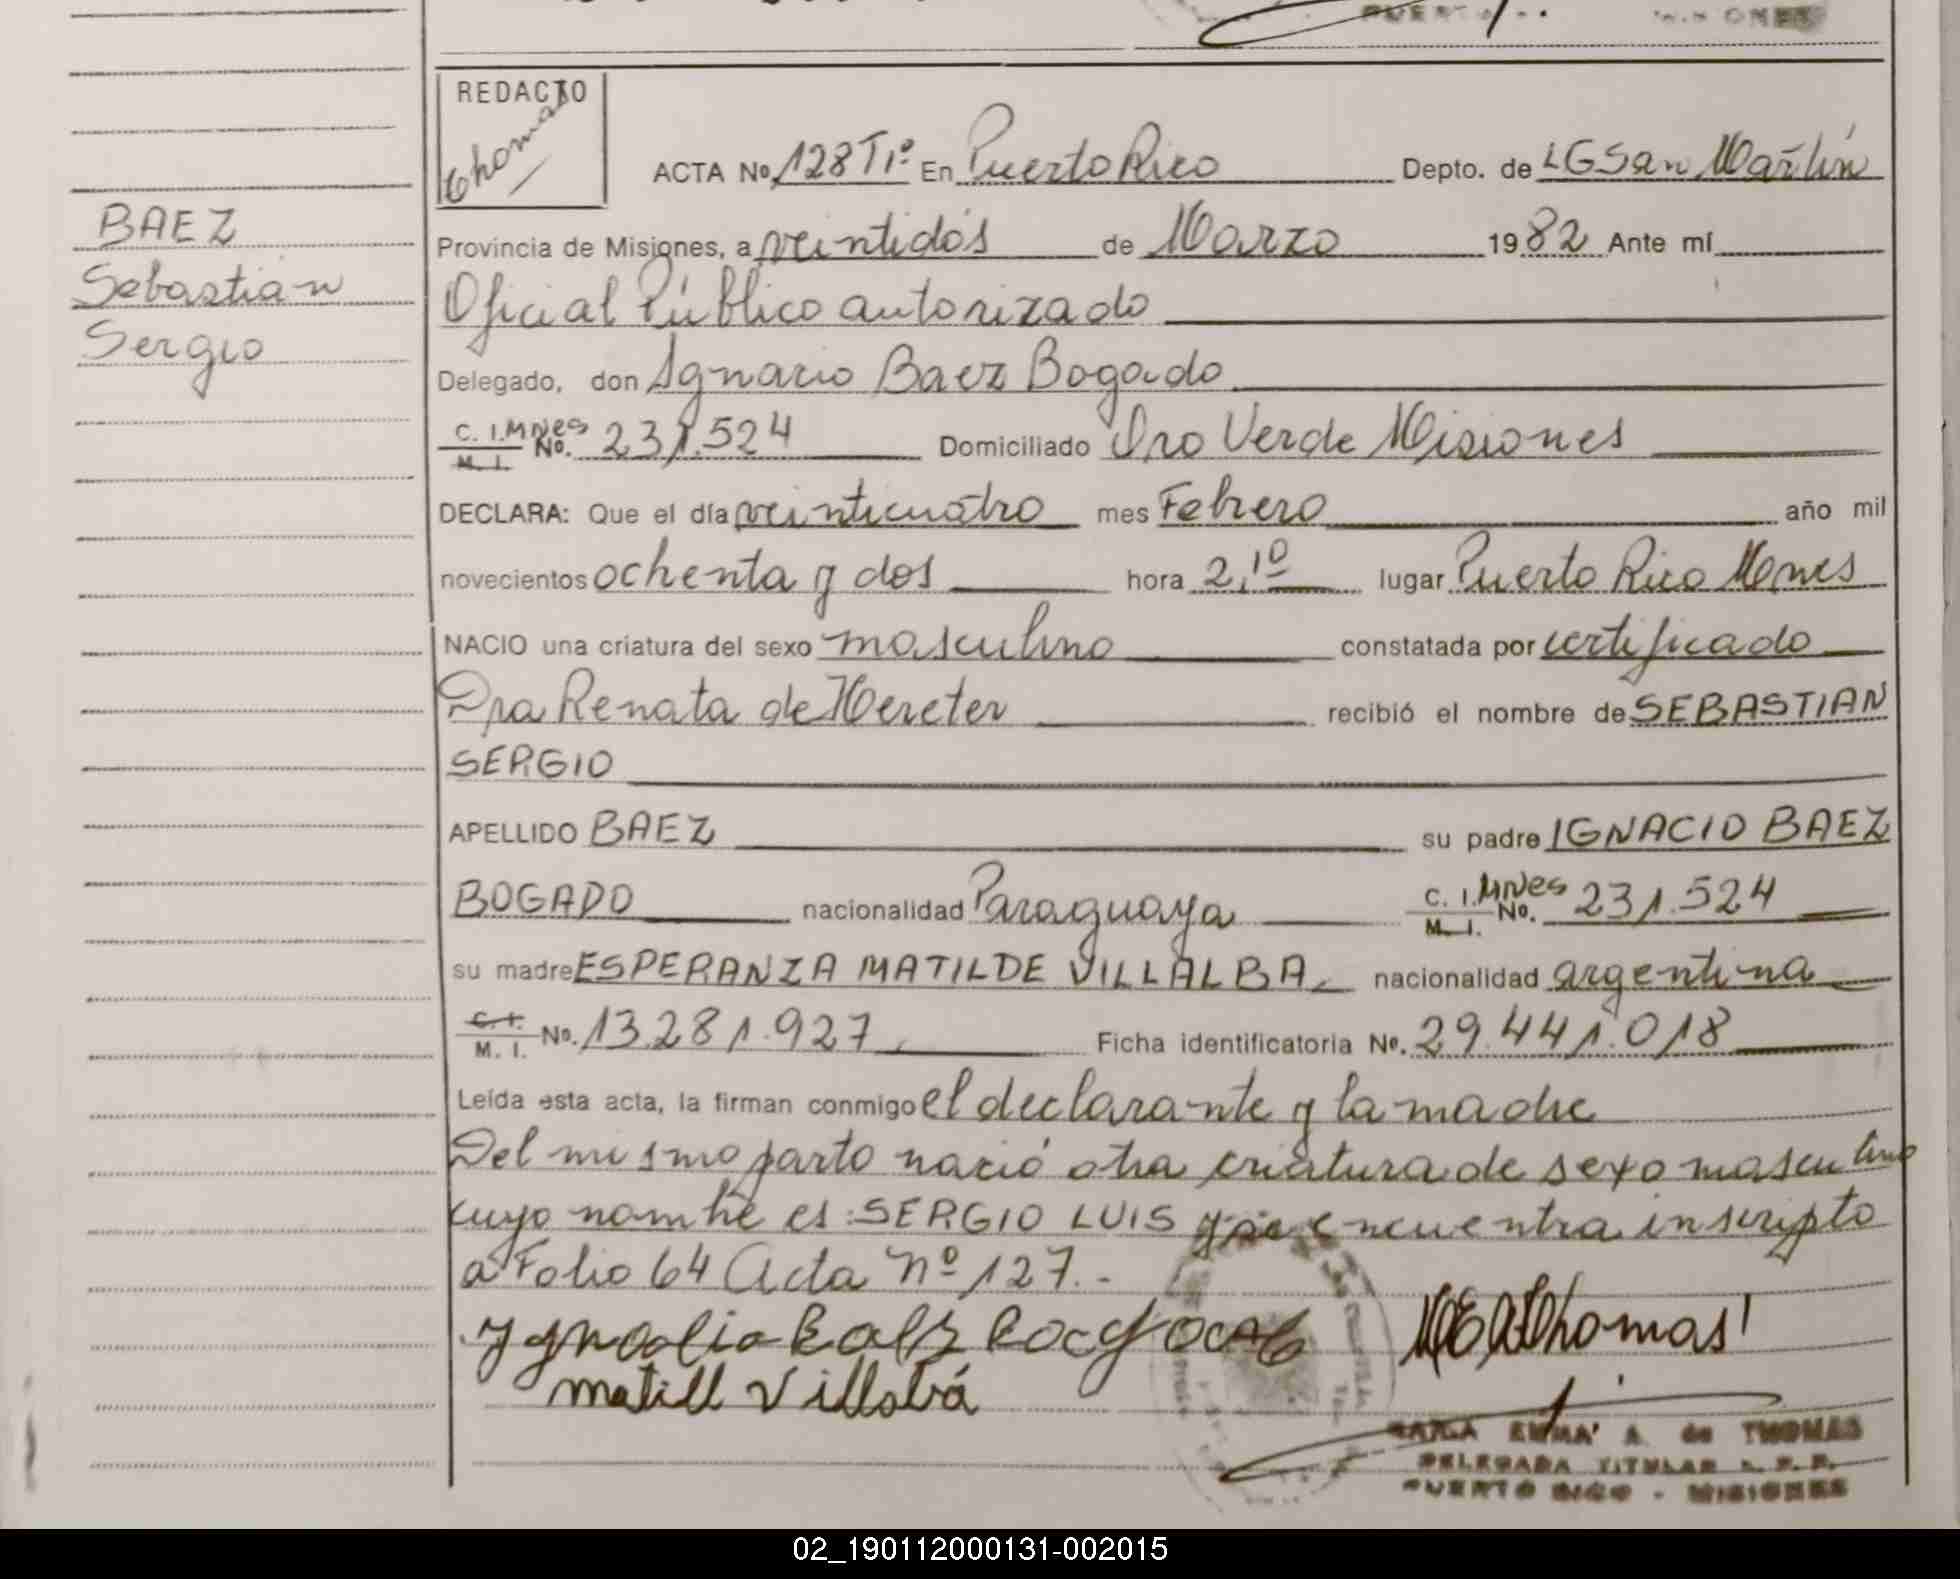 REDACTO
Thomas
ACTA No. 128 Tº1º En Puerto Rico Depto. de LGSan Martín
BAEZ
Sebastián
Sergio
Provincia de Misiones, a veintidós de Marzo 1982 Ante mí
Oficial Público autorizado
Delegado, don Ignacio Baez Bogado
C. I. Mnes M. I. No. 231.524 Domiciliado Oro Verde Misiones
DECLARA: Que el día veinticuatro mes Febrero año mil
novecientos ochenta y dos hora 2,10 lugar Puerto Rico Mnes
NACIO una criatura del sexo masculino constatada por certificado
Dra Renata de Hereter recibió el nombre de SEBASTIAN
SERGIO
APELLIDO BAEZ su padre IGNACIO BAEZ
BOGADO nacionalidad Paraguaya C. I. Mnes M. I. No. 231.524
su madre ESPERANZA MATILDE VILLALBA nacionalidad argentina
C. I. M. I. No. 13.281.927 Ficha identificatoria No. 29.441.018
Leída esta acta, la firman conmigo el declarante y la madre
Del mismo parto nació otra criatura de sexo masculino
cuyo nombre es: SERGIO LUIS y se encuentra inscripto
a Folio 64 Acta Nº 127.-
MEAThomas
matill Villalbá
MARIA EMMA A. de THOMAS
DELEGADA TITULAR R. P.
PUERTO RICO - MISIONES
02_190112000131-002015